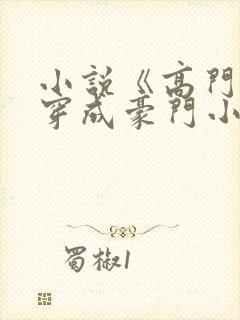 小說《高門
穿成豪門小
蜀椒1